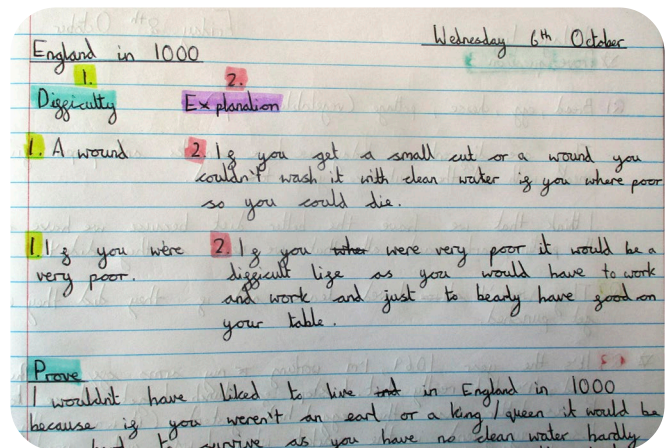 Wednesday 6th October
England in 1000
1. 2.
Difficulty Explanation
1. A wound 2. If you get a small cut or a wound you
couldn't wash it with clean water if you where poor
so you could die.
1. If you were 2. If you were very poor it would be a
very poor. difficult life as you would have to work
and work and just to bearly have good on
your table.
Prove
I wouldn't have liked to live in England in 1000
because if you weren't an earl or a king/queen it would be
hard to survive as you have no clean water hardly